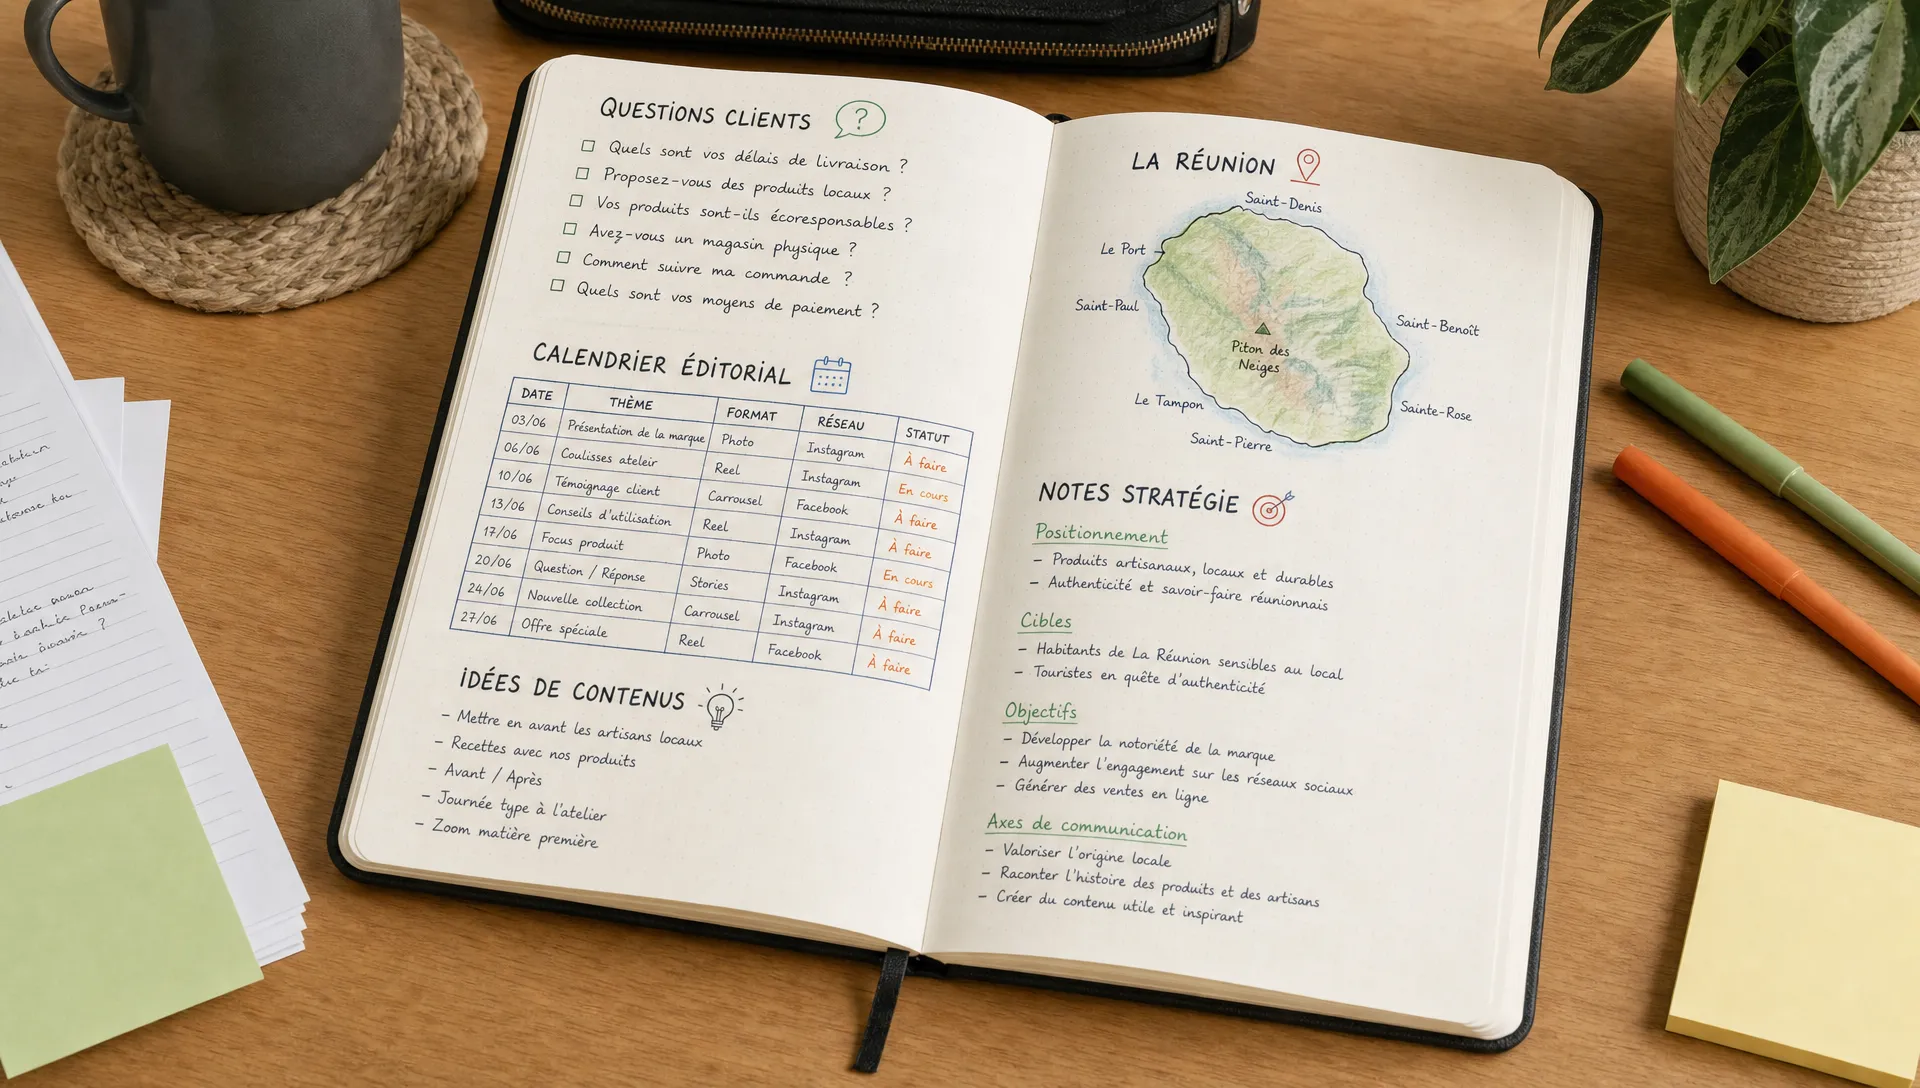 QUESTIONS CLIENTS
?
Quels sont vos délais de livraison ?
Proposez-vous des produits locaux ?
Vos produits sont-ils écoresponsables ?
Avez-vous un magasin physique ?
Comment suivre ma commande ?
Quels sont vos moyens de paiement ?
CALENDRIER ÉDITORIAL
DATE THÈME FORMAT RÉSEAU STATUT
03/06 Présentation de la marque Photo Instagram À faire
06/06 Coulisses ateleir Reel Instagram En cours
10/06 Témoignage client Carrousel Facebook À faire
13/06 Conseils d'utilisation Reel Instagram À faire
17/06 Focus produit Photo Facebook En cours
20/06 Question / Réponse Stories Instagram À faire
24/06 Nouvelle collection Carrousel Instagram À faire
27/06 Offre spéciale Reel Facebook À faire
IDÉES DE CONTENUS
- Mettre en avant les artisans locaux
- Recettes avec nos produits
- Avant / Après
- Journée type à l'atelier
- Zoom matière première
LA RÉUNION
Saint-Denis
Le Port
Saint-Paul
Saint-Benoît
Piton des
Neiges
Le Tampon
Sainte-Rose
Saint-Pierre
NOTES STRATÉGIE
Positionnement
- Produits artisanaux, locaux et durables
- Authenticité et savoir-faire réunionnais
Cibles
- Habitants de La Réunion sensibles au local
- Touristes en quête d'authenticité
Objectifs
- Développer la notoriété de la marque
- Augmenter l'engagement sur les réseaux sociaux
- Générer des ventes en ligne
Axes de communication
- Valoriser l'origine locale
- Raconter l'histoire des produits et des artisans
- Créer du contenu utile et inspirant